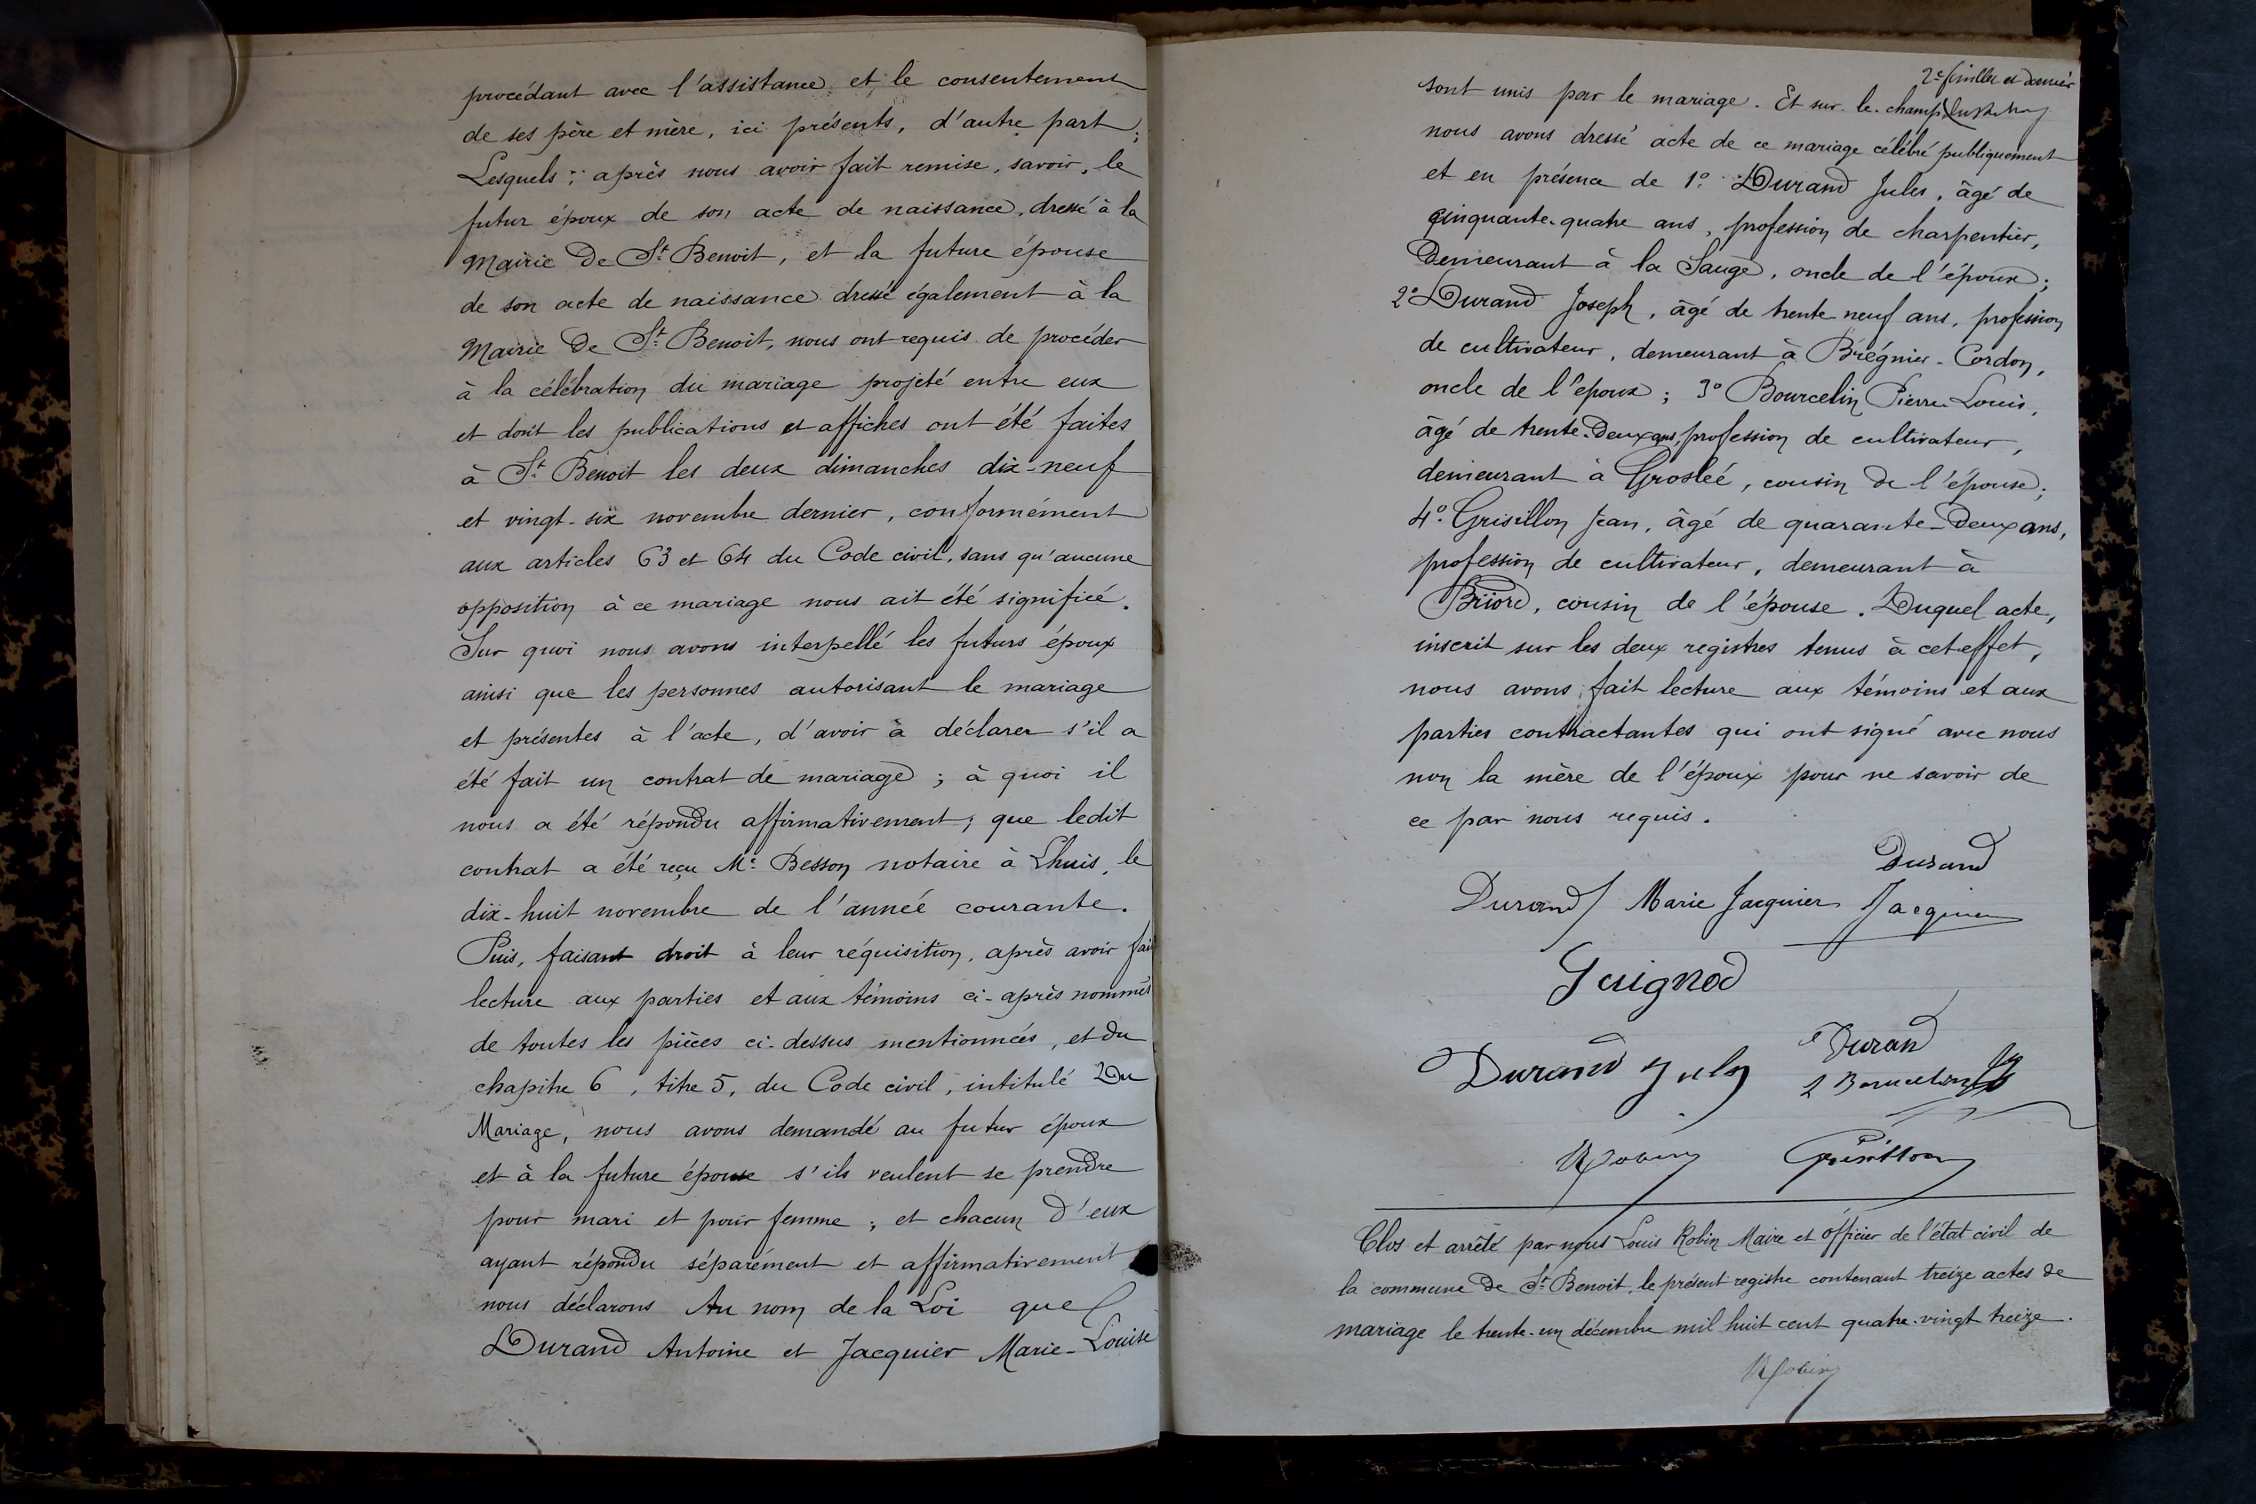 procédant avec l'assistance et le consentement
de ses père et mère, ici présents, d'autre part ;
Lesquels ; après nous avoir fait remise, savoir, le
futur époux de son acte de naissance, dressé à la
Mairie De St Benoit, et la future épouse
de son acte de naissance dressé également à la
Mairie De St Benoit, nous ont requis de procéder
à la célébration du mariage projeté entre eux
et dont les publications et affiches ont été faites
à St Benoit les deux dimanches dix-neuf
et vingt-six novembre dernier, conformément
aux articles 63 et 64 du Code civil, sans qu'aucune
opposition à ce mariage nous ait été signifiée.
Sur quoi nous avons interpellé les futurs époux
ainsi que les personnes autorisant le mariage
et présentes à l'acte, d'avoir à déclarer s'il a
été fait un contrat de mariage ; à quoi il
nous a été répondu affirmativement ; que ledit
contrat a été reçu Me Besson notaire à Lhuis, le
dix-huit novembre de l'année courante.
Puis, faisant droit à leur réquisition, après avoir fait
lecture aux parties et aux témoins ci-après nommés
de toutes les pièces ci-dessus mentionnées, et du
chapitre 6, titre 5, du Code civil, intitulé Du
Mariage, nous avons demandé au futur époux
et à la future épouse s'ils veulent se prendre
pour mari et pour femme ; et chacun d'eux
ayant répondu séparément et affirmativement
nous déclarons Au nom de la Loi que
Durand Antoine et Jacquier Marie-Louise
2e feuillet et dernier
sont unis par le mariage. Et sur-le-champ
nous avons dressé acte de ce mariage célébré publiquement
et en présence de 1° Durand Jules, âgé de
cinquante-quatre ans, profession de charpentier,
Demeurant à la Sauge, oncle de l'époux ;
2° Durand Joseph, âgé de trente neuf ans, profession
de cultivateur, demeurant à Brégnier-Cordon,
oncle de l'époux ; 3° Bourcelin Pierre Louis,
âgé de trente-Deux ans, profession de cultivateur,
demeurant à Groslée, cousin de l'épouse ;
4° Grisillon Jean, âgé de quarante-Deux ans,
profession de cultivateur, demeurant à
Briord, cousin de l'épouse. Duquel acte,
inscrit sur les deux registres tenus à cet effet,
nous avons fait lecture aux témoins et aux
parties contractantes qui ont signé avec nous
non la mère de l'époux pour ne savoir de
ce par nous requis.
Durand
Durand Marie Jacquier Jacquier
Guignod
Durand Jules Durand
Bourcelin
Robin Grisillon
Clos et arrêté par nous Louis Robin Maire et officier de l'état civil de
la commune De St Benoit, le présent registre contenant treize actes de
mariage le trente-un décembre mil huit cent quatre-vingt treize.
Robin